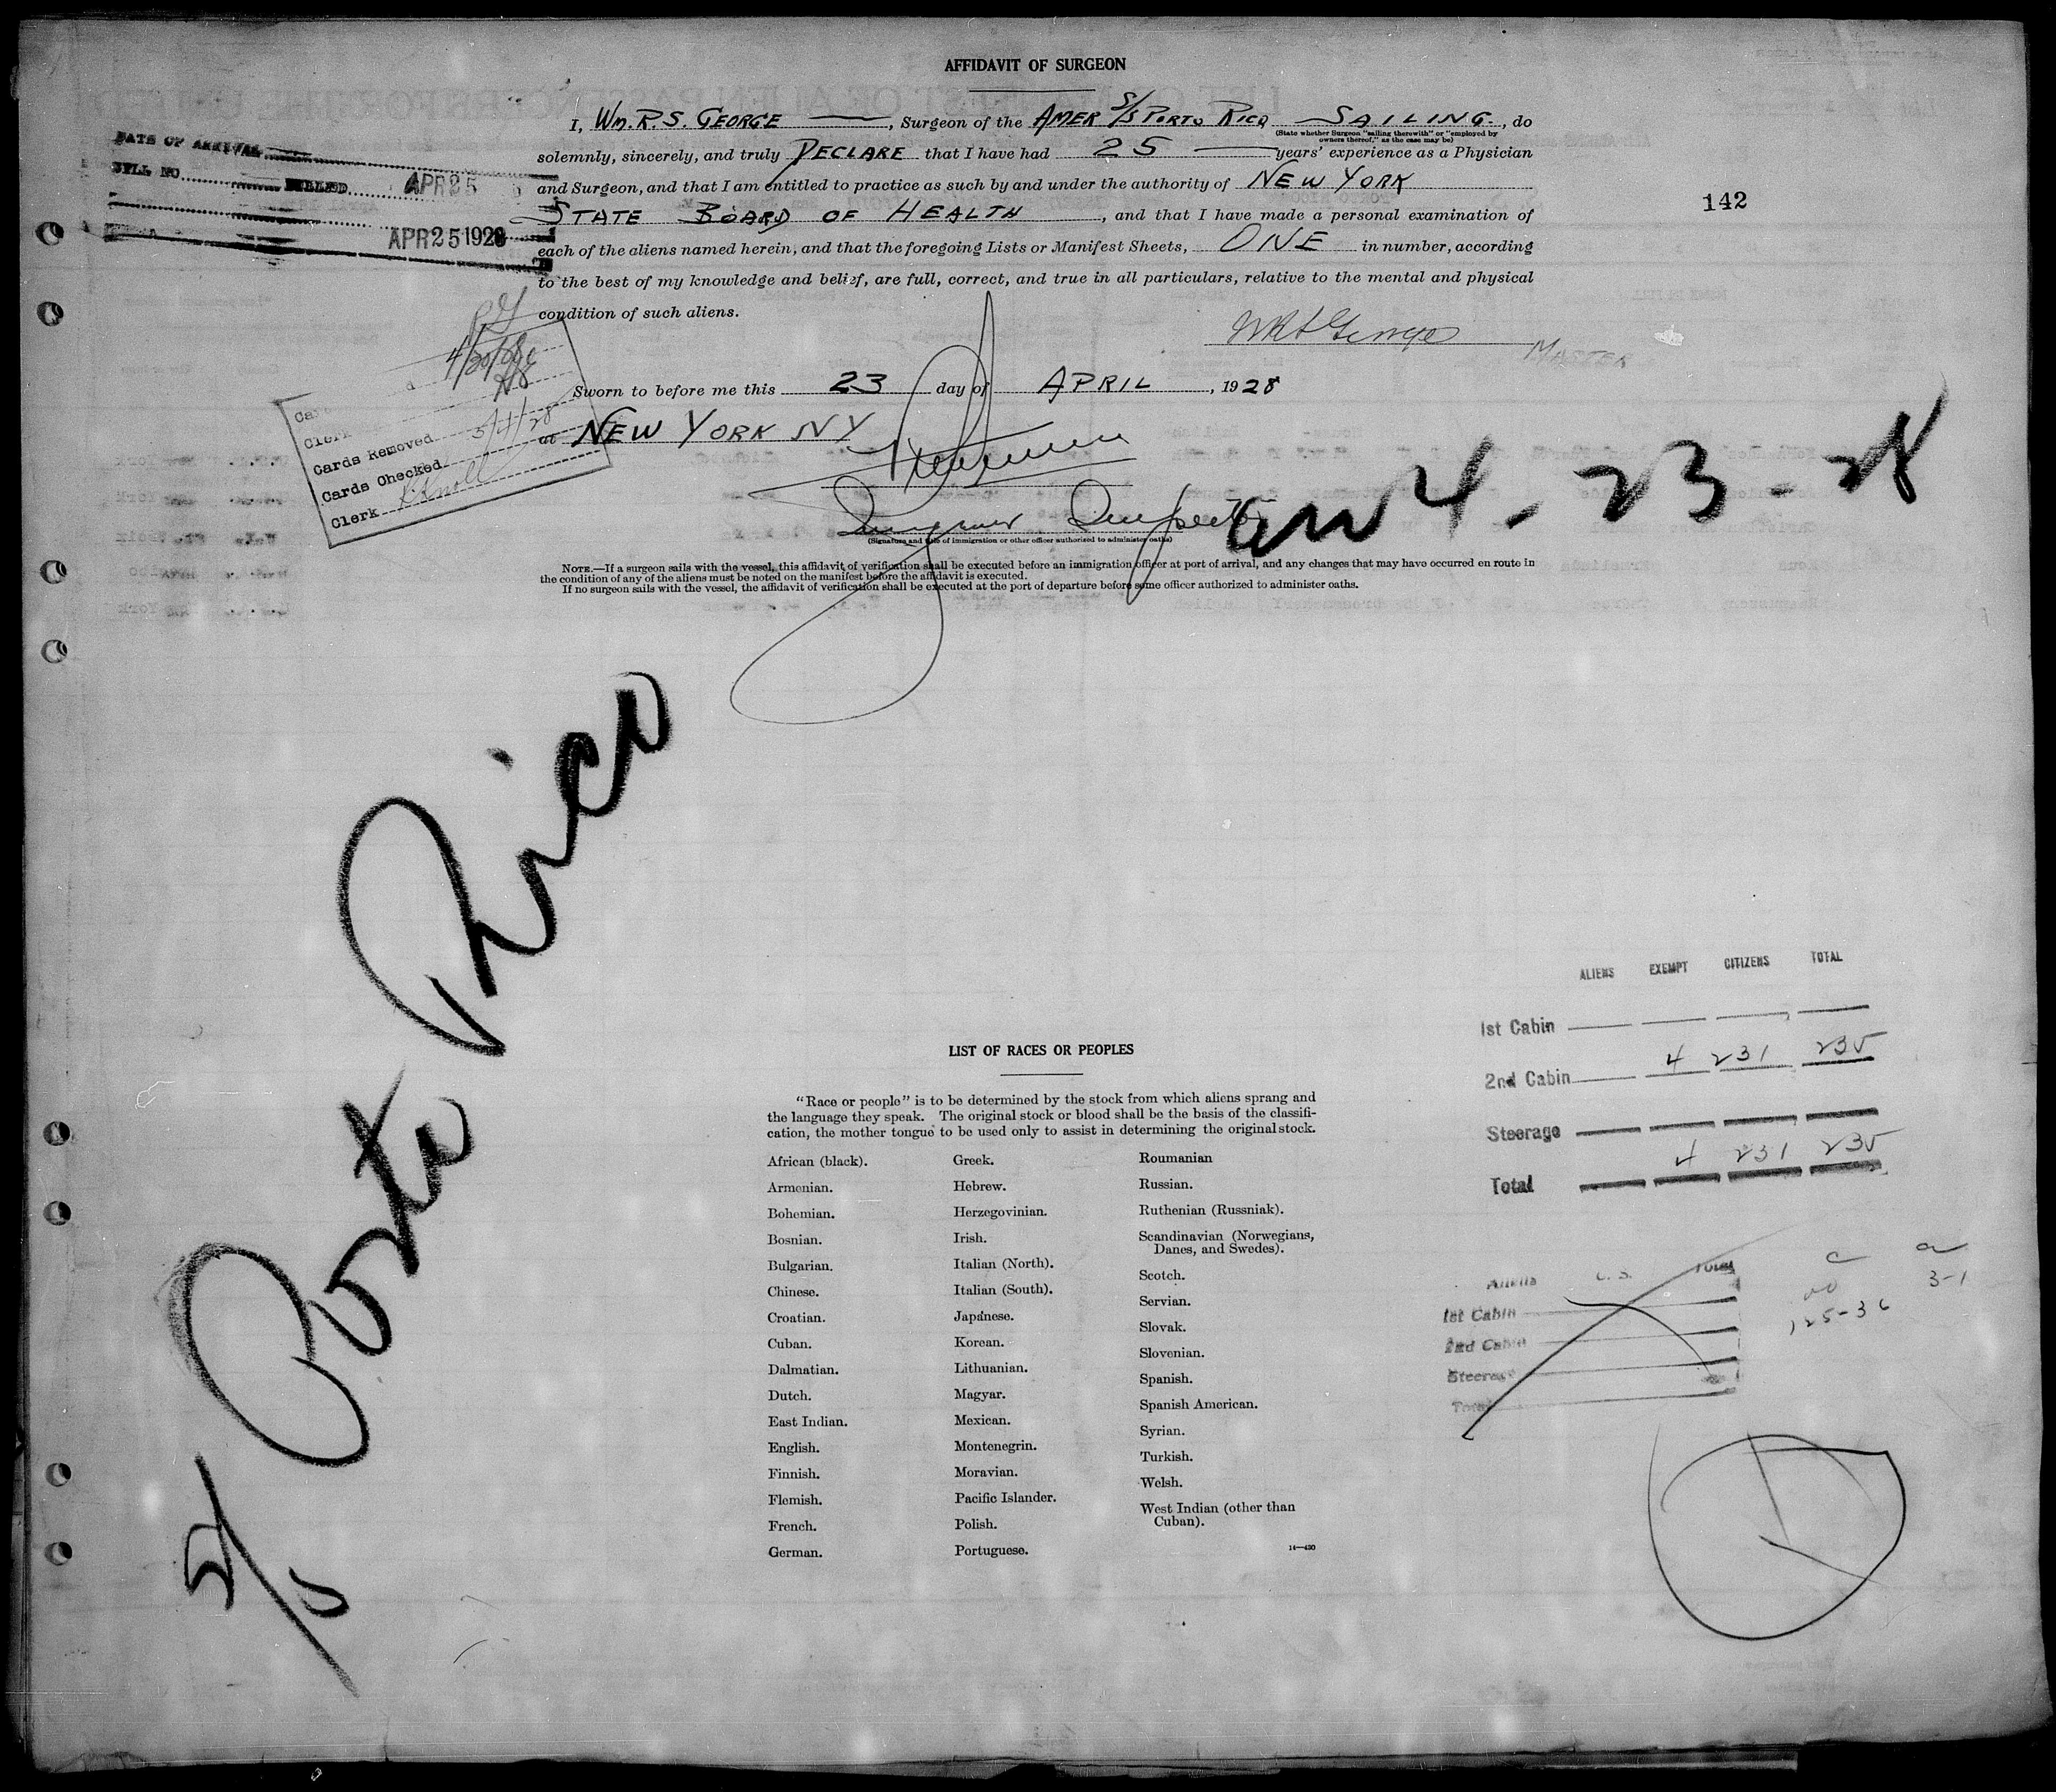 AFFIDAVIT OF SURGEON
I, Wm. R. S. GEORGE, Surgeon of the AMER S/S PORTO RICO SAILING, do
(State whether Surgeon "sailing therewith" or "employed by
owners thereof," as the case may be)
solemnly, sincerely, and truly DECLARE that I have had 25 years' experience as a Physician
and Surgeon, and that I am entitled to practice as such by and under the authority of NEW YORK
STATE BOARD OF HEALTH, and that I have made a personal examination of
each of the aliens named herein, and that the foregoing Lists or Manifest Sheets, ONE in number, according
to the best of my knowledge and belief, are full, correct, and true in all particulars, relative to the mental and physical
condition of such aliens.
DATE OF ARRIVAL
BILL NO. BILLED APR 25
APR 25 1928
142
WRS George
MASTER
Sworn to before me this 23 day of APRIL, 1928
at NEW YORK NY
Cards Removed 5/4/28
Cards Checked
Clerk K Knoll
Immigrant Inspector
(Signature and title of immigration or other officer authorized to administer oaths)
4-23-28
NOTE.—If a surgeon sails with the vessel, this affidavit of verification shall be executed before an immigration officer at port of arrival, and any changes that may have occurred en route in
the condition of any of the aliens must be noted on the manifest before the affidavit is executed.
If no surgeon sails with the vessel, the affidavit of verification shall be executed at the port of departure before some officer authorized to administer oaths.
S/S Porto Rico
ALIENS EXEMPT CITIZENS TOTAL
1st Cabin
2nd Cabin 4 231 235
Steerage
Total 4 231 235
LIST OF RACES OR PEOPLES
"Race or people" is to be determined by the stock from which aliens sprang and
the language they speak. The original stock or blood shall be the basis of the classifi-
cation, the mother tongue to be used only to assist in determining the original stock.
African (black).
Armenian.
Bohemian.
Bosnian.
Bulgarian.
Chinese.
Croatian.
Cuban.
Dalmatian.
Dutch.
East Indian.
English.
Finnish.
Flemish.
French.
German.
Greek.
Hebrew.
Herzegovinian.
Irish.
Italian (North).
Italian (South).
Japanese.
Korean.
Lithuanian.
Magyar.
Mexican.
Montenegrin.
Moravian.
Pacific Islander.
Polish.
Portuguese.
Roumanian
Russian.
Ruthenian (Russniak).
Scandinavian (Norwegians,
Danes, and Swedes).
Scotch.
Servian.
Slovak.
Slovenian.
Spanish.
Spanish American.
Syrian.
Turkish.
Welsh.
West Indian (other than
Cuban).
14—430
Aliens U. S. Total
1st Cabin
2nd Cabin
Steerage
Total
3-1
125-36